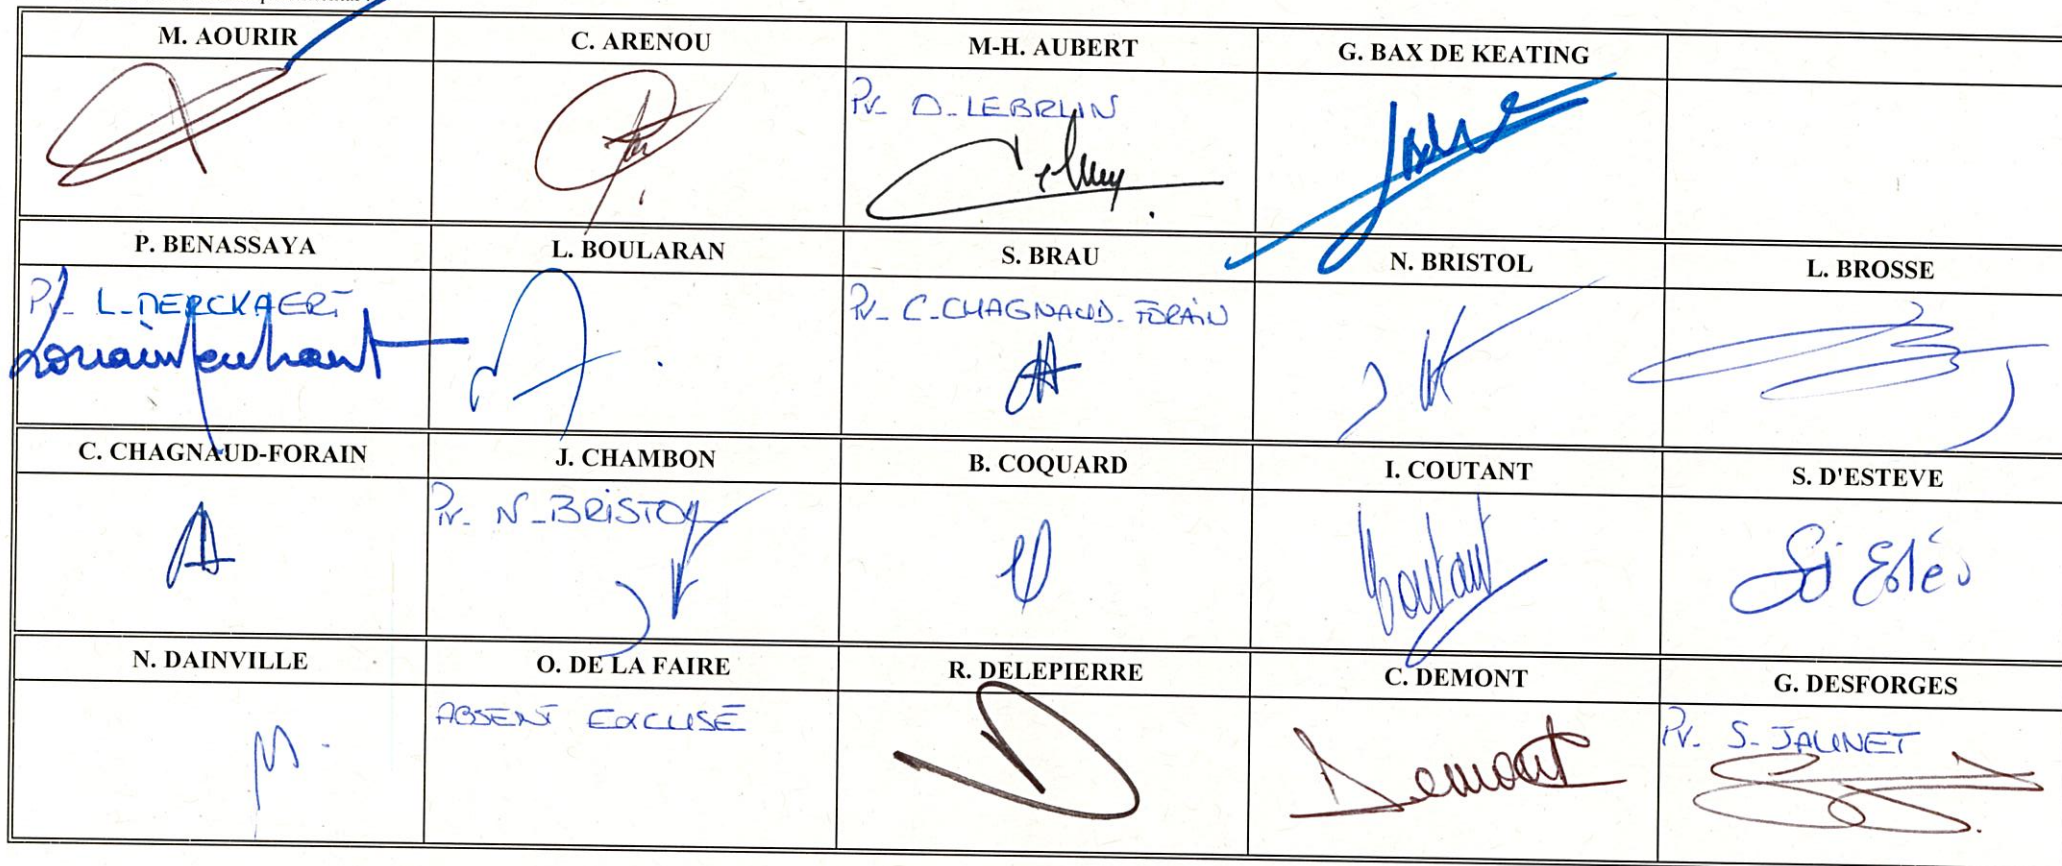 M. AOURIR
C. ARENOU
M-H. AUBERT
G. BAX DE KEATING
Pv- D-LEBRUN
P. BENASSAYA
L. BOULARAN
S. BRAU
N. BRISTOL
L. BROSSE
Pv- L-MERCKAERT
Pv- C-CHAGNAUD-FORAIN
C. CHAGNAUD-FORAIN
J. CHAMBON
B. COQUARD
I. COUTANT
S. D'ESTEVE
Pv- N-BRISTOL
Coutant
N. DAINVILLE
O. DE LA FAIRE
R. DELEPIERRE
C. DEMONT
G. DESFORGES
ABSENT EXCUSÉ
Demont
Pv- S-JAUNET